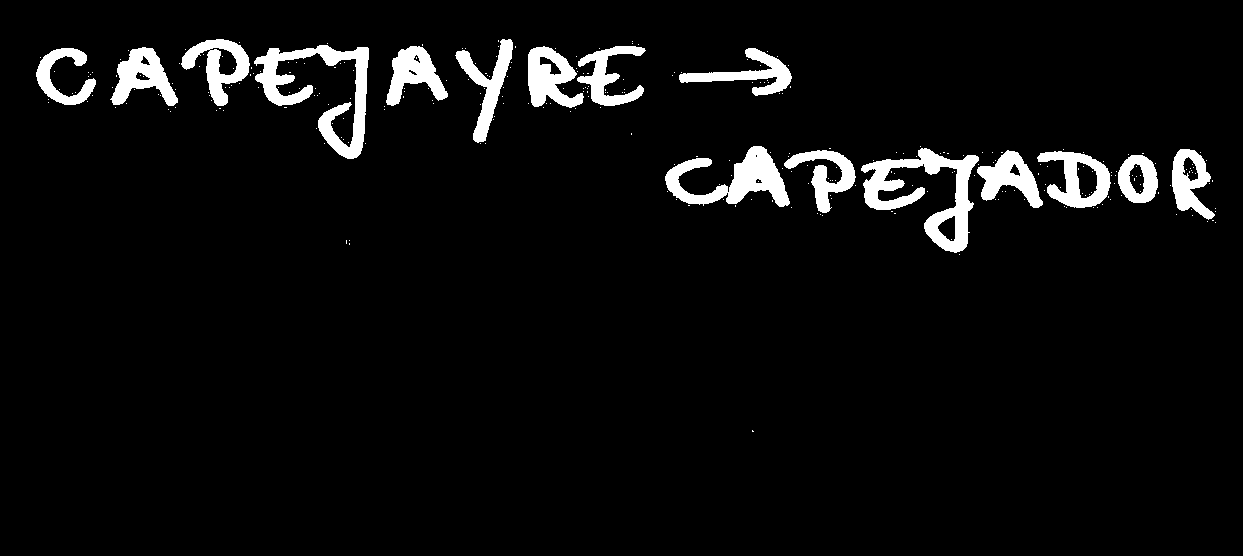 CAPEJAYRE →
CAPEJADOR